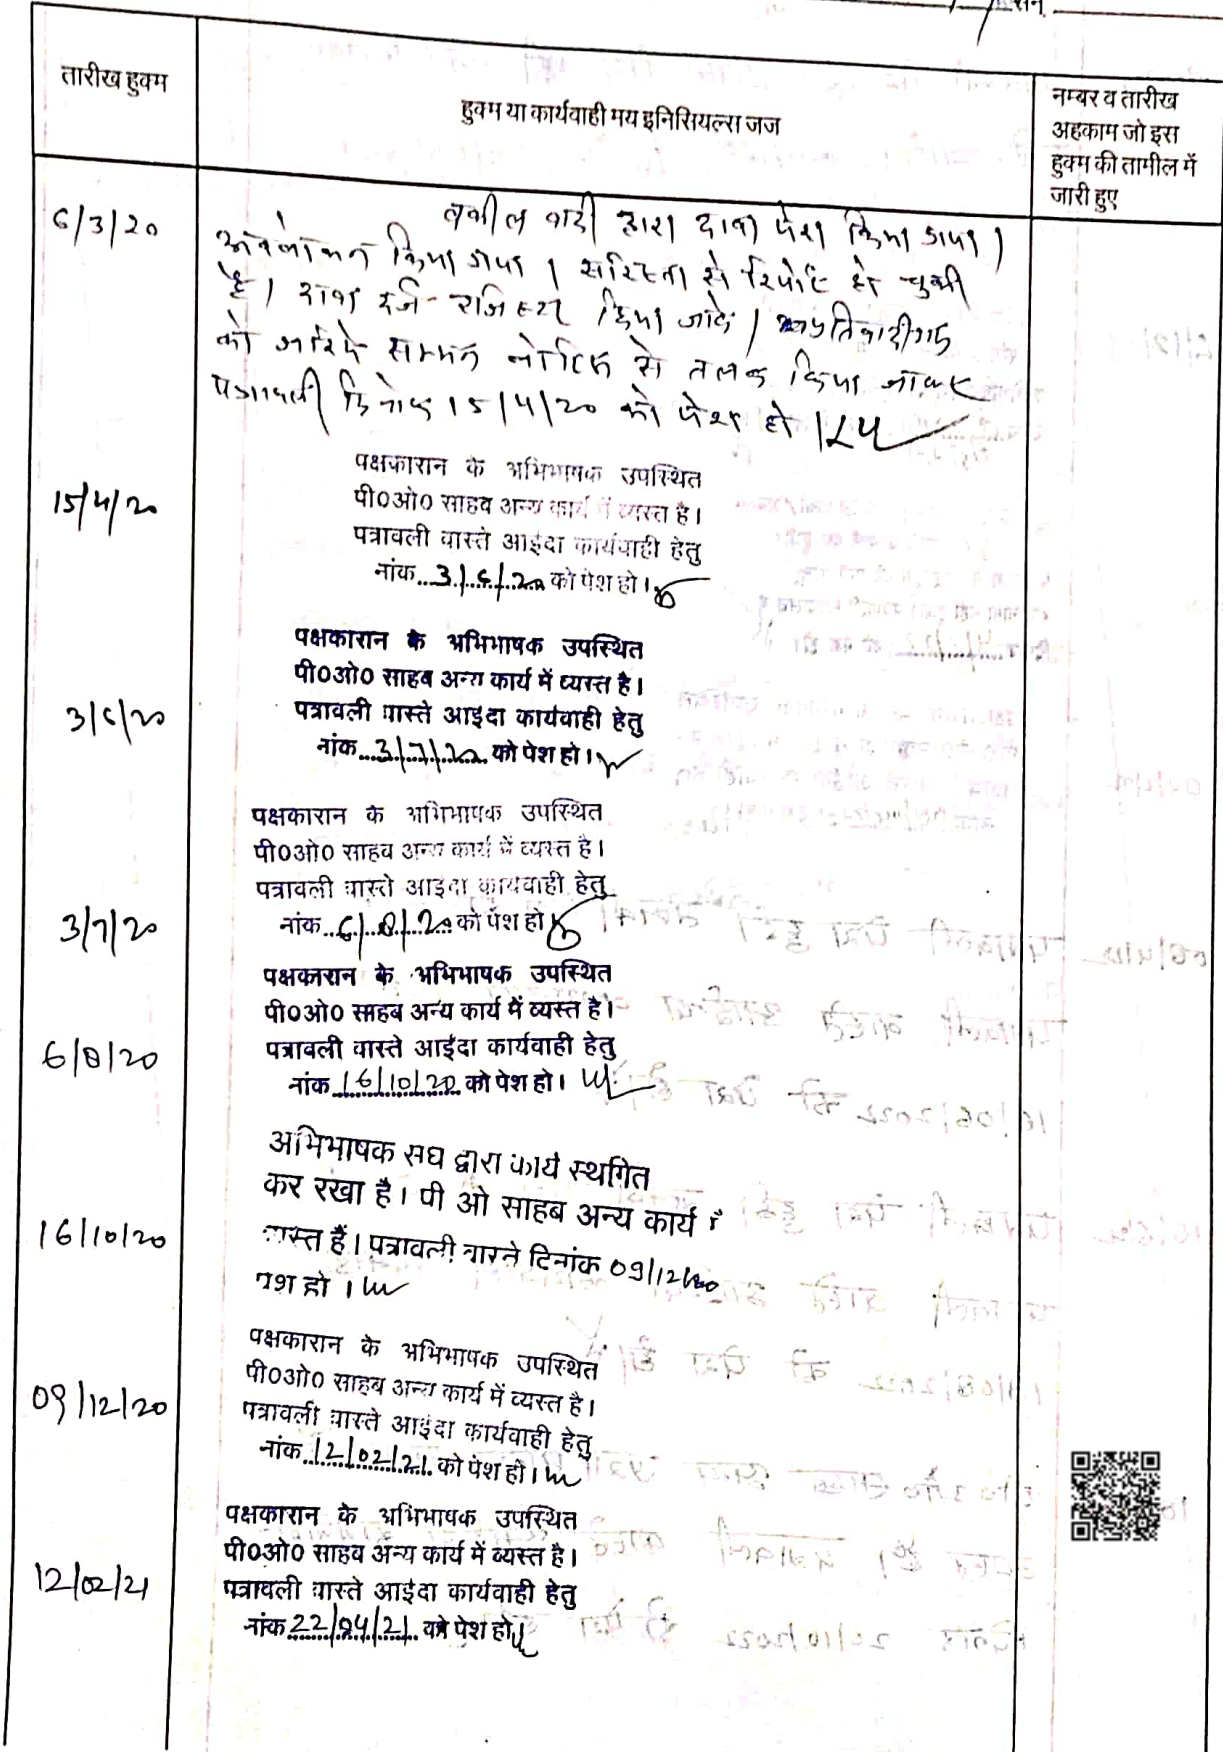 तारीख हुक्म
हुक्म या कार्यवाही मय इनिसियल्स जज
नम्बर व तारीख
अहकाम जो इस
हुक्म की तामील में
जारी हुए
6/3/20
वकील वादी द्वारा दावा पेश किया गया।
अवलोकन किया गया। सरिस्ता से रिपोर्ट हो चुकी
है। दावा दर्ज रजिस्टर किया जावे। प्रतिवादीगण
को जरिये सम्मन नोटिस से तलब किया जाकर
पत्रावली दिनांक 15/4/20 को पेश हो।
15/4/20
पक्षकारान के अभिभाषक उपस्थित
पी०ओ० साहब अन्य कार्य में व्यस्त है।
पत्रावली वास्ते आईदा कार्यवाही हेतु
नांक 3/6/20 को पेश हो।
3/6/20
पक्षकारान के अभिभाषक उपस्थित
पी०ओ० साहब अन्य कार्य में व्यस्त है।
पत्रावली वास्ते आईदा कार्यवाही हेतु
नांक 3/7/20 को पेश हो।
3/7/20
पक्षकारान के अभिभाषक उपस्थित
पी०ओ० साहब अन्य कार्य में व्यस्त है।
पत्रावली वास्ते आईदा कार्यवाही हेतु
नांक 6/8/20 को पेश हो
6/8/20
पक्षकारान के अभिभाषक उपस्थित
पी०ओ० साहब अन्य कार्य में व्यस्त है।
पत्रावली वास्ते आईदा कार्यवाही हेतु
नांक 16/10/20 को पेश हो।
16/10/20
अभिभाषक संघ द्वारा कार्य स्थगित
कर रखा है। पी ओ साहब अन्य कार्य में
व्यस्त हैं। पत्रावली वास्ते दिनांक 09/12/20
पेश हो।
09/12/20
पक्षकारान के अभिभाषक उपस्थित
पी०ओ० साहब अन्य कार्य में व्यस्त है।
पत्रावली वास्ते आईदा कार्यवाही हेतु
नांक 12/02/21 को पेश हो।
12/02/21
पक्षकारान के अभिभाषक उपस्थित
पी०ओ० साहब अन्य कार्य में व्यस्त है।
पत्रावली वास्ते आईदा कार्यवाही हेतु
नांक 22/04/21 को पेश हो